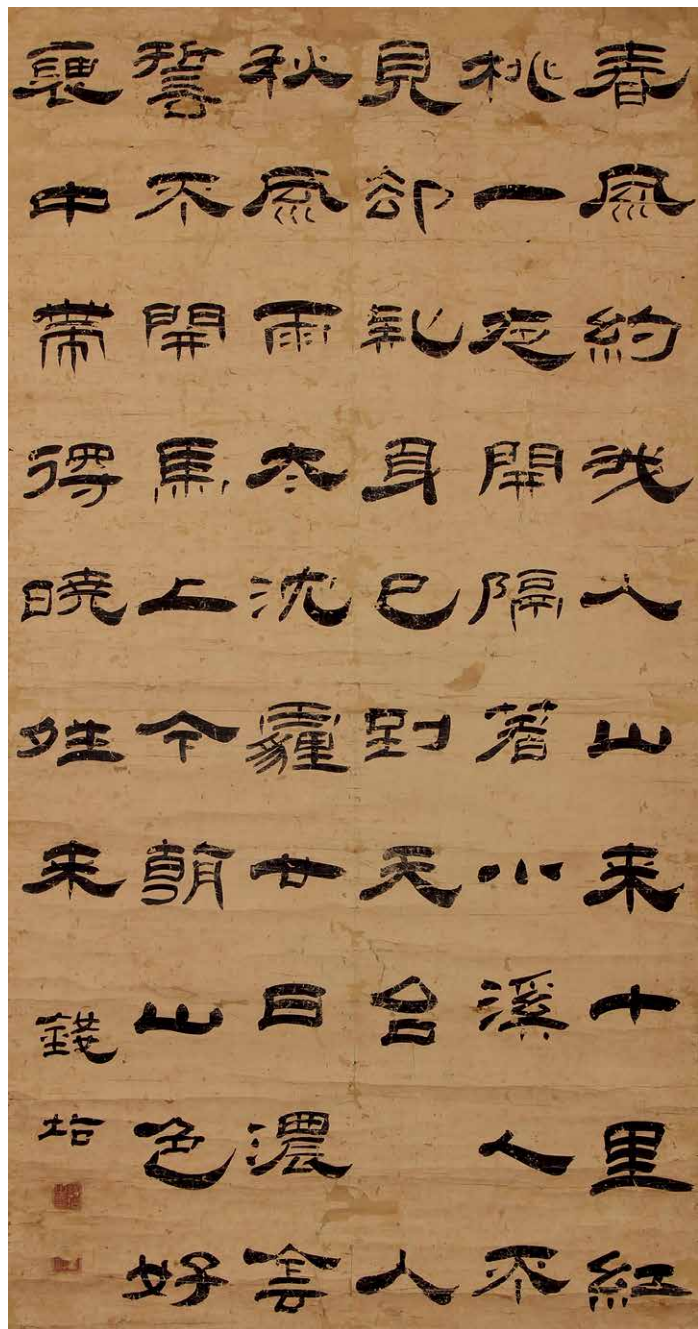 春風約我入山来十里紅
桃一夜開隔著小溪人不
見却身已到天台入
秋風雨太沈霾廿日濃雲
誓不開馬上今朝山色好
褱中帶得曉夝来
錢坫